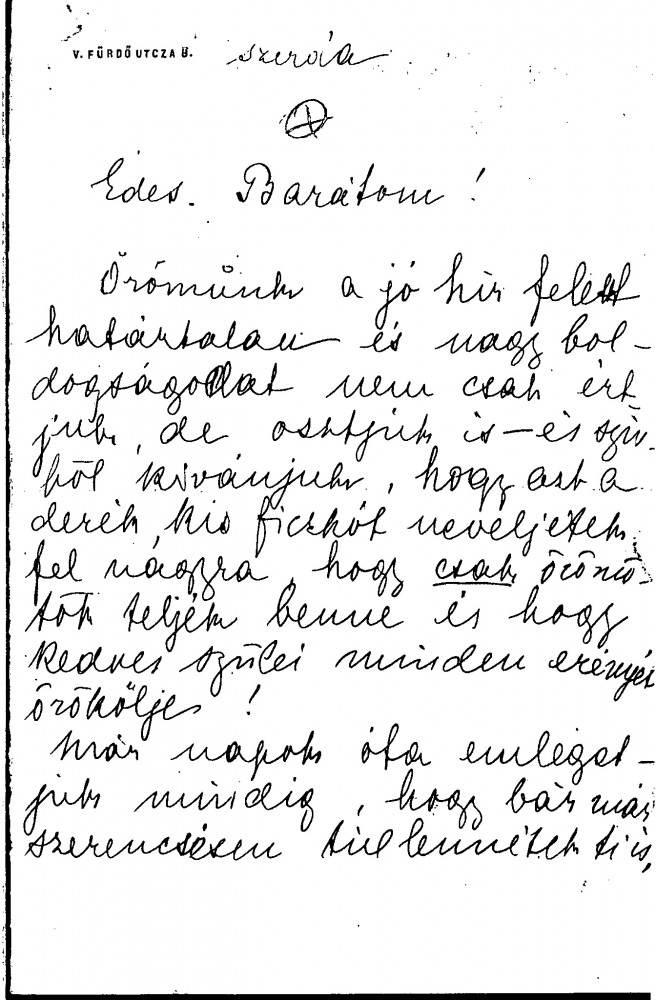 V. FÜRDŐ UTCZA 8. szerda
1
Édes. Barátom!
Örömünk a jó hir felett
határtalan és nagy bol-
dogságodat nem csak ért
juk, de osztjuk is – és sziv-
ből kivánjuk, hogy azt a
derék kis ficzkót neveljétek
fel nagyra, hogy csak örömö-
tök teljék benne és hogy
kedves szülei minden erényét
örökölje!
Már napok óta emleget-
jük mindig, hogy bár már
szerencsésen túl lennétek ti is,